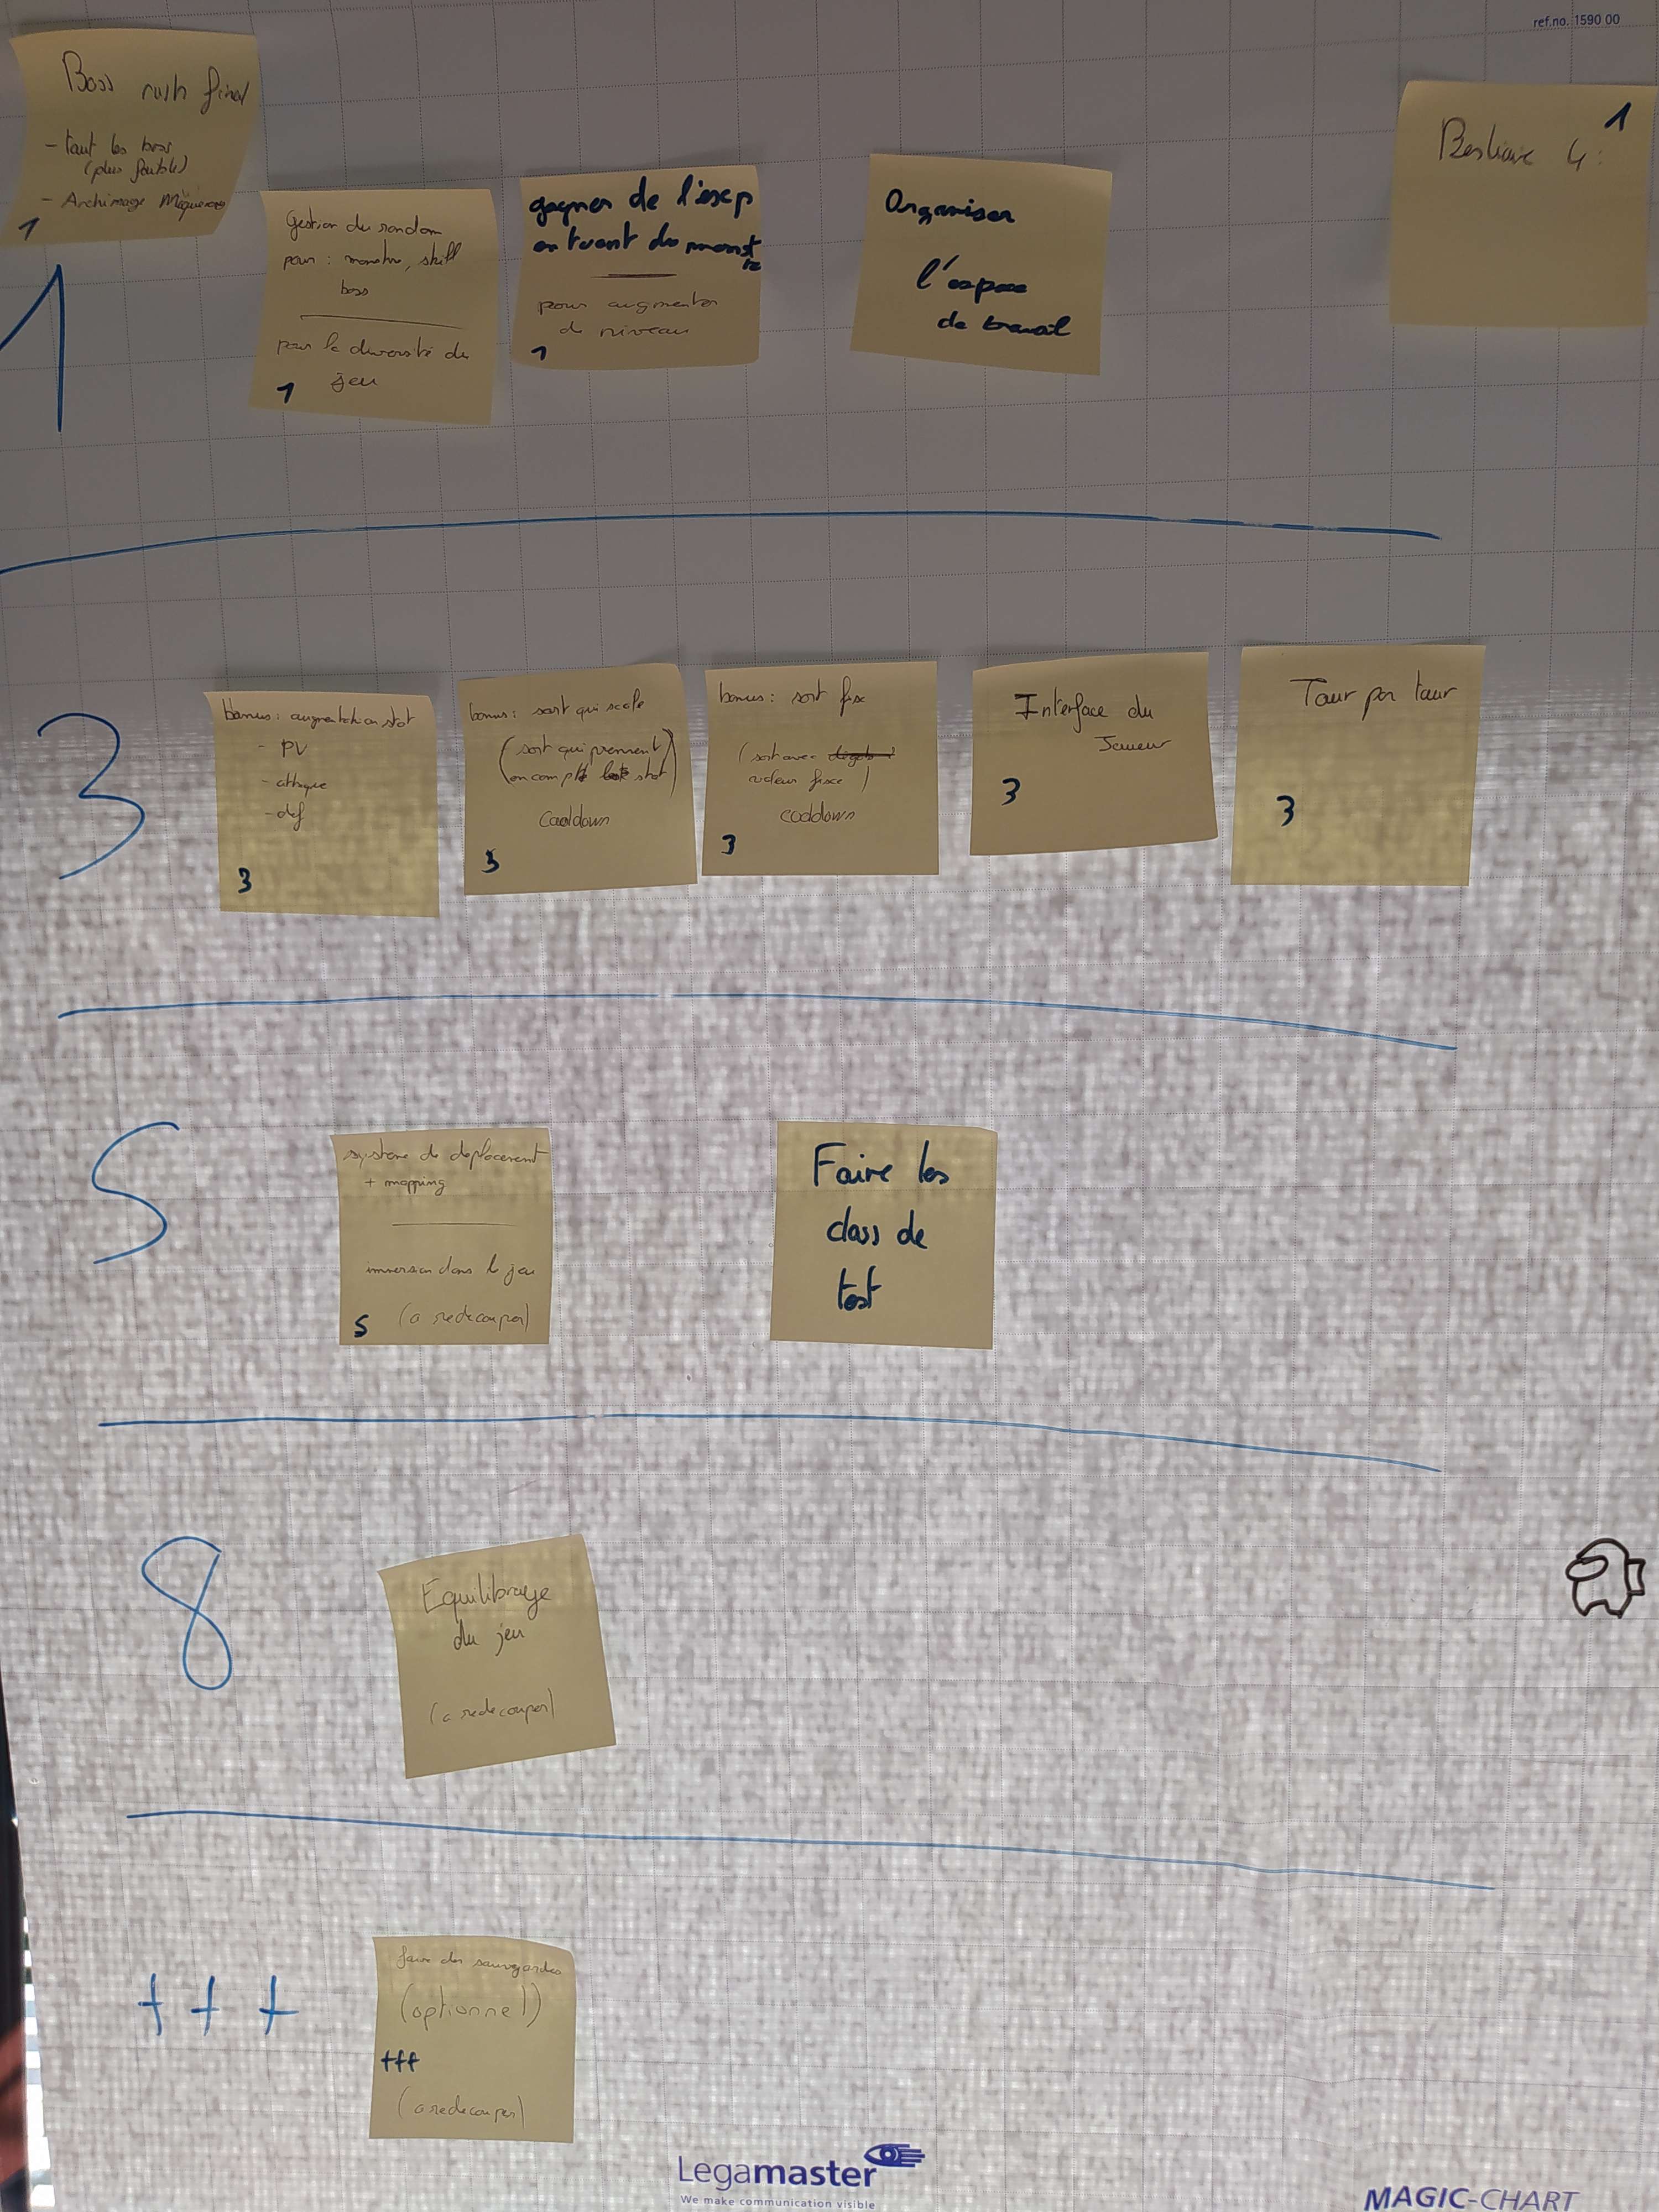 ref.no. 1590 00
Boss rush final
- tout les boss
(plus faible)
- Archimage
1
1
Gestion du random
pour : monstre, skill
boss
pour la diversité du
jeu
1
gagner de l'exp
en tuant des monst
re
pour augmenter
de niveau
1
Organiser
l'espace
de travail
1
Bestiaire 4:
3
bonus: augmentation stat
- PV
- attaque
- def
3
bonus: sort qui scale
(sort qui prennent
en compte stat)
Cooldown
3
bonus: sort fixe
(sort avec dégats
valeur fixe)
cooldown
3
Interface du
Joueur
3
Tour par tour
3
5
système de deplacement
+ mapping
immersion dans le jeu
(a redecouper)
5
Faire les
class de
test
8
Equilibrage
du jeu
(a redecouper)
+++
faire des sauvegardes
(optionnel)
+++
(a redecouper)
Legamaster
We make communication visible
MAGIC-CHART